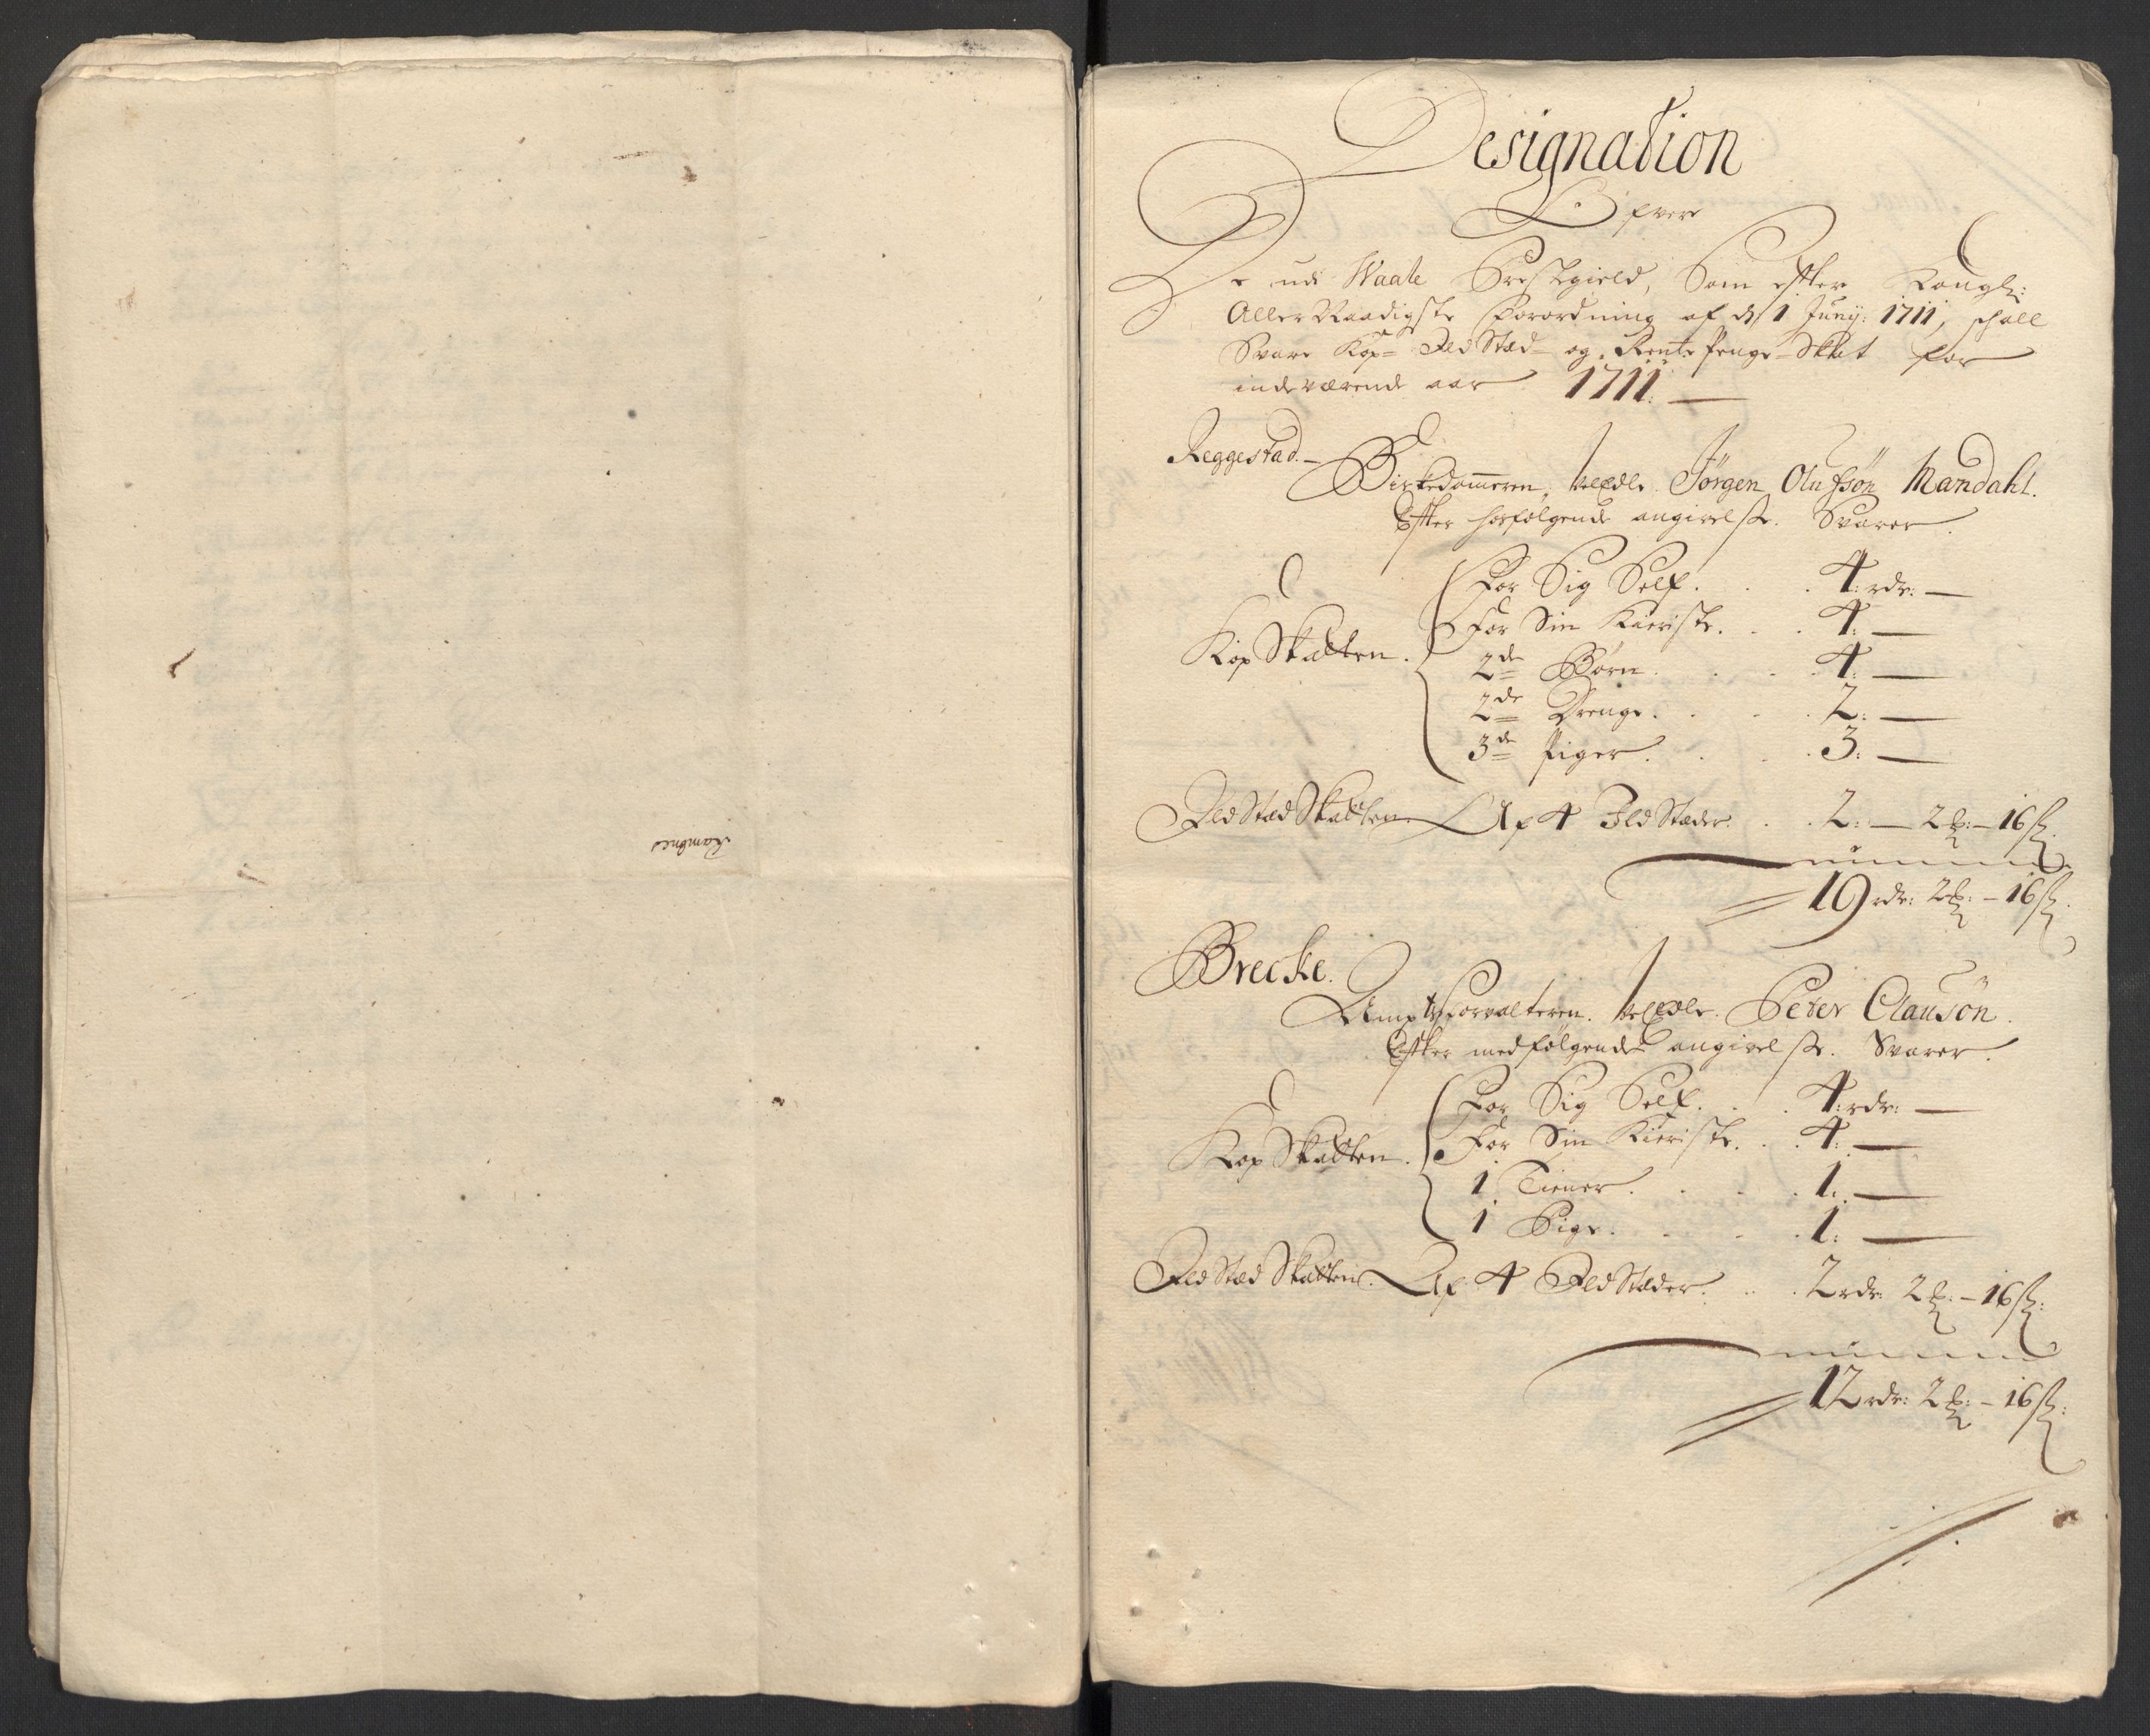 Ramnes
Designation
Ofver
De udi Waale Præstegield, Som efter Kongl:
Aller Naadigste Forordning af d. 1 Junij: 1711, schall
Svare Kop= Ild Sted= og Rente Penge=Skat for
indeværende aar 1711:
Reggestad.
Birkedom̅eren, Jørgen Olufsøn Mandahl.
Efter hosfølgende angivelse. Svarer.
Kop Skatten.
For Sig Self. 4: rdr:
For Sin Kieriste. 4:
2de Børn. 4:
2de Drenge. 2:
3de Piger. 3:
Ild Sted Skatten Af 4 Ild Steder. 2: 2 16 ß
19 rdr: 2 16 ß
Brecke.
Ampts Forvalteren. Peter Clausøn.
Efter medfølgende angivelse. Svarer.
Kop Skatten.
For Sig Self. 4: rdr:
For Sin Kieriste. 4:
1 Tiener. 1:
1 Pige. 1:
Ild Sted Skatten. Af 4 Ild Steder. 2 rdr: 2 16 ß:
12 rdr: 2 16 ß: